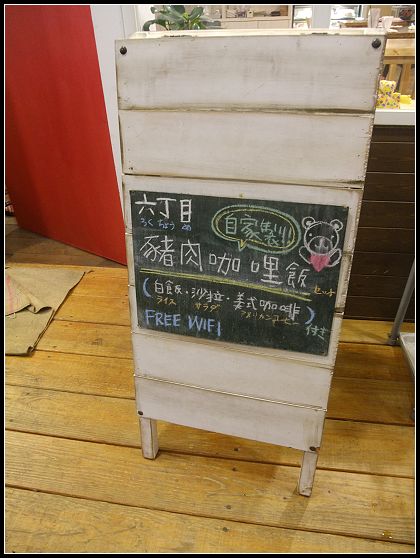 六丁目
ろく ちょう め
自家製!
豬肉咖哩飯 セット
(白飯·沙拉·美式咖啡)
ライス サラダ アメリカンコーヒー 付き
FREE WIFI